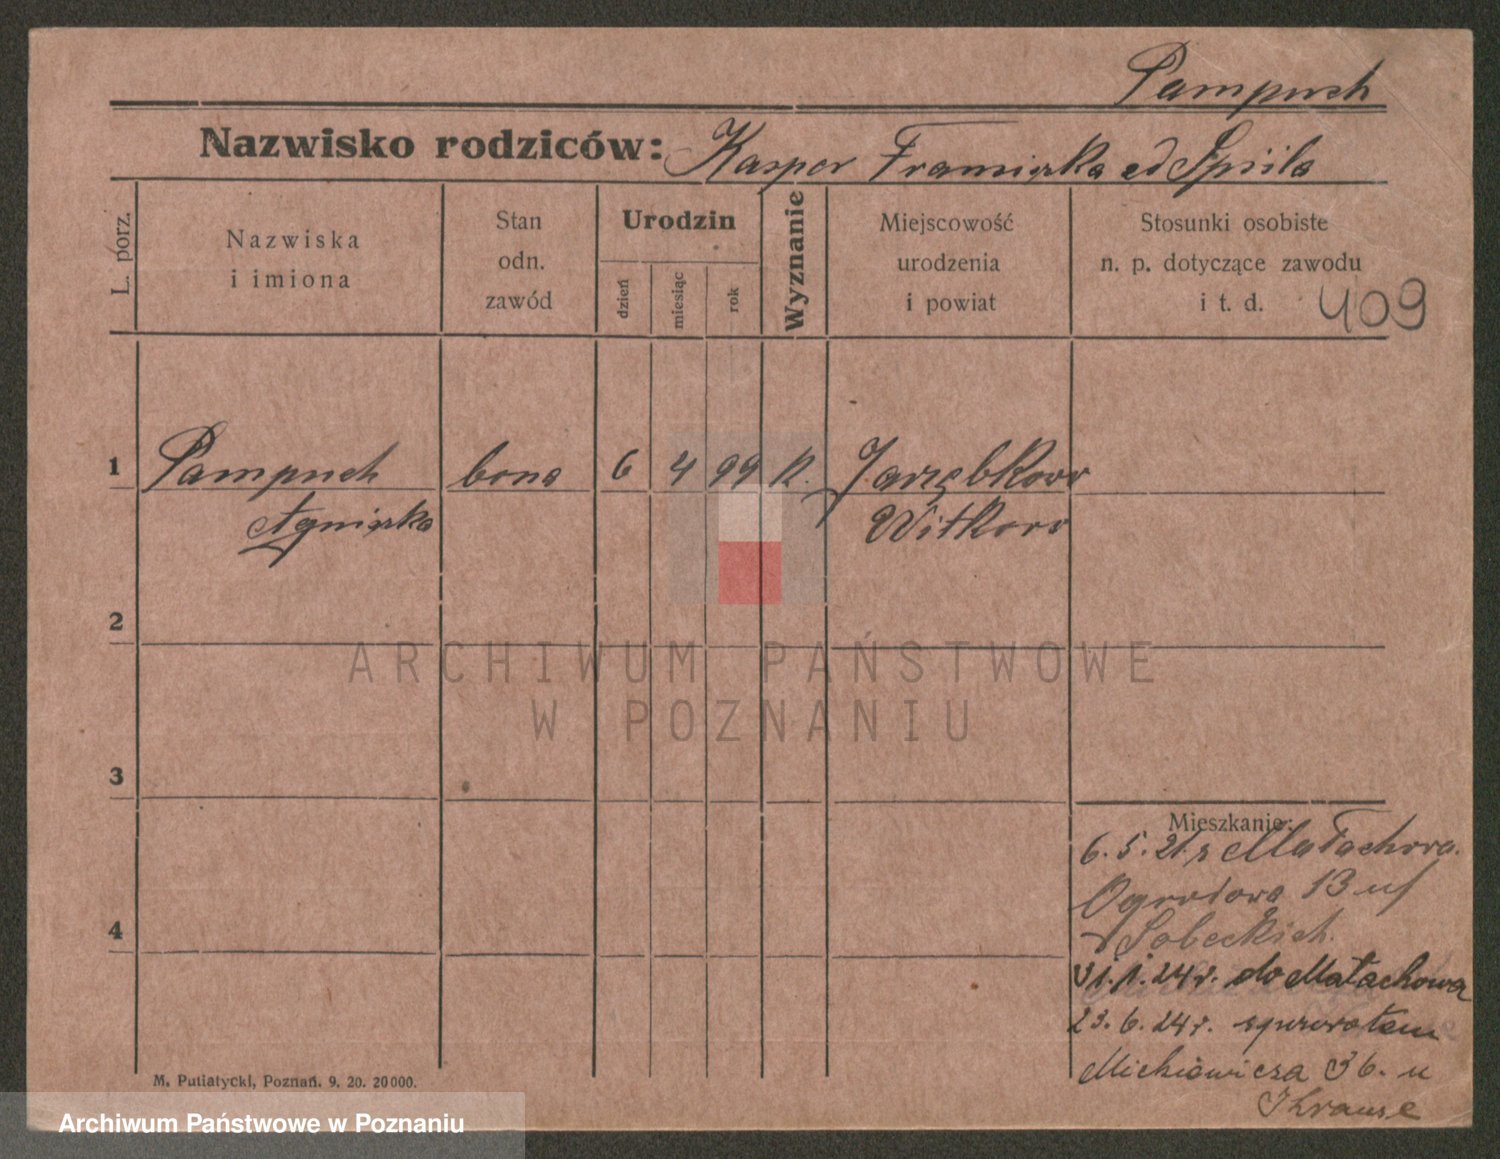 Pampuch
Nazwisko rodziców: Kasper Franciszka
L. porz.
Nazwiska
i imiona
Stan
odn.
zawód
Urodzin
dzień
miesiąc
rok
Wyznanie
Miejscowość
urodzenia
i powiat
Stosunki osobiste
n. p. dotyczące zawodu
i t. d.
409
1 Pampuch bona 6 4 99 k. Jarząbkowo
Agnieszka Witkowo
2
ARCHIWUM PAŃSTWOWE
W POZNANIU
3
Mieszkanie:
6.5.21 z Małachowa.
Ogrodowa 13 u/
Sobeckich.
4
31.1.24r. do Małachowa
23.6.24r. zpowrotem
Mickiewicza 36. u
Krause
M. Putiatycki, Poznań. 9. 20. 20000.
Archiwum Państwowe w Poznaniu